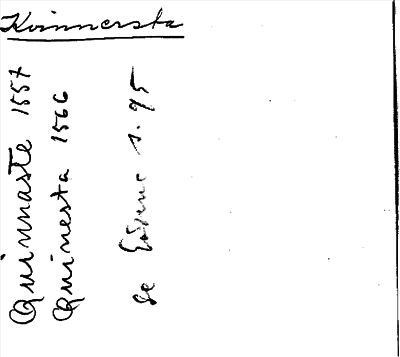 Kvinnersta
Quinnaste 1557
Quinesta 1566
se s. 95